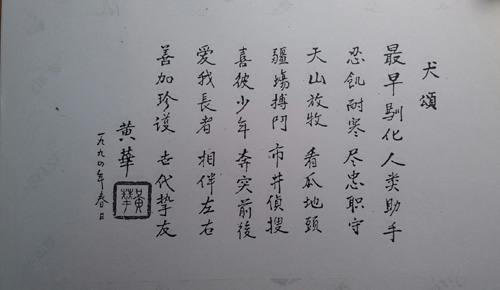 犬頌
最早馴化 人类助手
忍飢耐寒 尽忠职守
天山放牧 看瓜地頭
疆場搏鬥 市井偵搜
喜彼少年 奔突前後
愛我長者 相伴左右
善加珍護 世代摯友
黄華
一九九四年春日
黃華